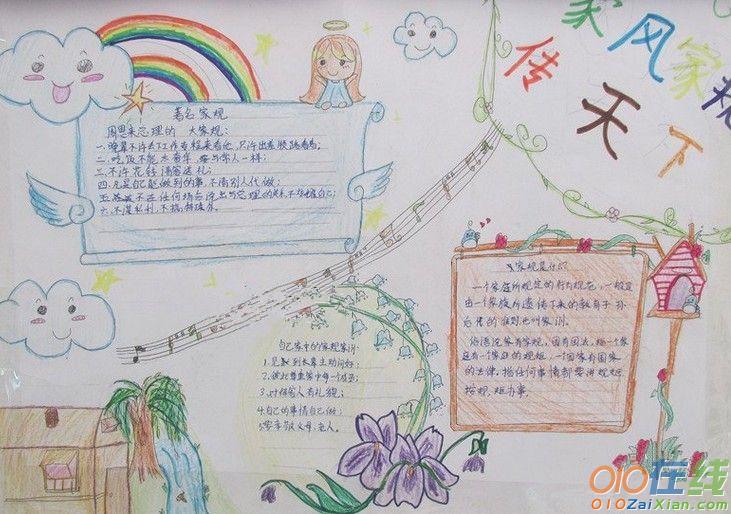 家风家规
传天下
著名家规
周恩来总理的 大家规：
一、晚辈不许丢下工作专程来看他，只许出差顺路看看；
二、吃饭不能
与常人一样；
三、不许花钱请客送礼；
四、凡是自己能做到的事，不需别人代做；
不在任何场合
总理的关系，不
自己；
六、不谋私利，不搞特殊
家规是什么
一个家庭所规定的行为规范，一般是
由一个家族所遗传下来的教育子孙
后代的准则也叫家训。
俗语说家有家规，国有国法，指一个家
庭有一个家庭的规矩，一个国家有国家
的法律。指任何事情都要讲规矩
按规矩办事。
自己家中的家规家训：
1.见到长辈主动问好；
2.彼此尊重家中每一个成员；
3.对待客人有礼貌；
4.自己的事情自己做；
5.要孝敬父母、老人。
010在线
010ZaiXian.com